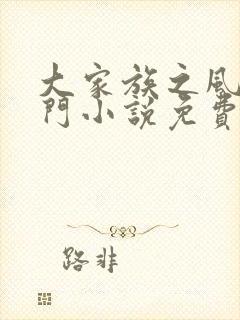 大家族之風
門小說免費
路非